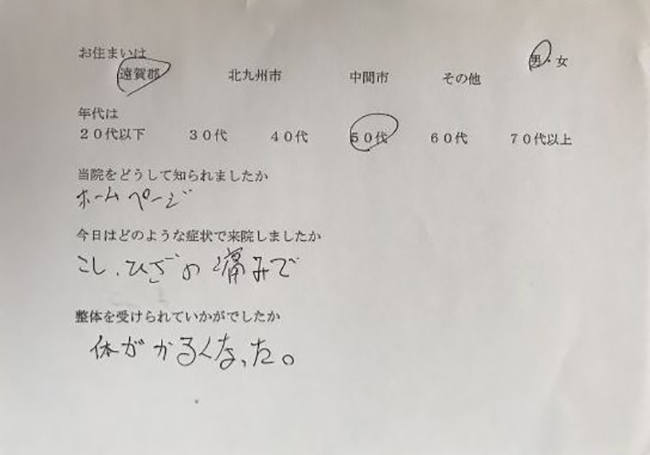 お住まいは
遠賀郡 北九州市 中間市 その他 男・女
年代は
２０代以下 ３０代 ４０代 ５０代 ６０代 ７０代以上
当院をどうして知られましたか
ホームページ
今日はどのような症状で来院しましたか
こし、ひざの痛みで
整体を受けられていかがでしたか
体がかるくなった。